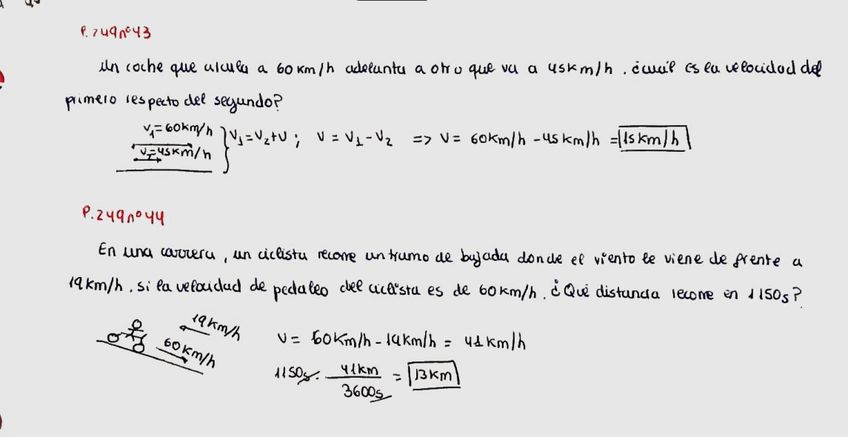 P.249nº43
Un coche que circula a 60Km/h adelanta a otro que va a 45km/h. ¿cuál es la velocidad del
primero respecto del segundo?
V₁=60km/h
V₂=45Km/h
V₁=V₂+V; V = V₁-V₂ => V= 60Km/h -45 km/h = 15 km/h
P.249nº44
En una carrera, un ciclista recorre un tramo de bajada donde el viento le viene de frente a
19km/h. si la velocidad de pedaleo del ciclista es de 60Km/h. ¿Qué distancia recorre en 1150s?
19Km/h
60Km/h
V= 60Km/h - 19Km/h = 41km/h
1150s · 41km / 3600s = 13 Km